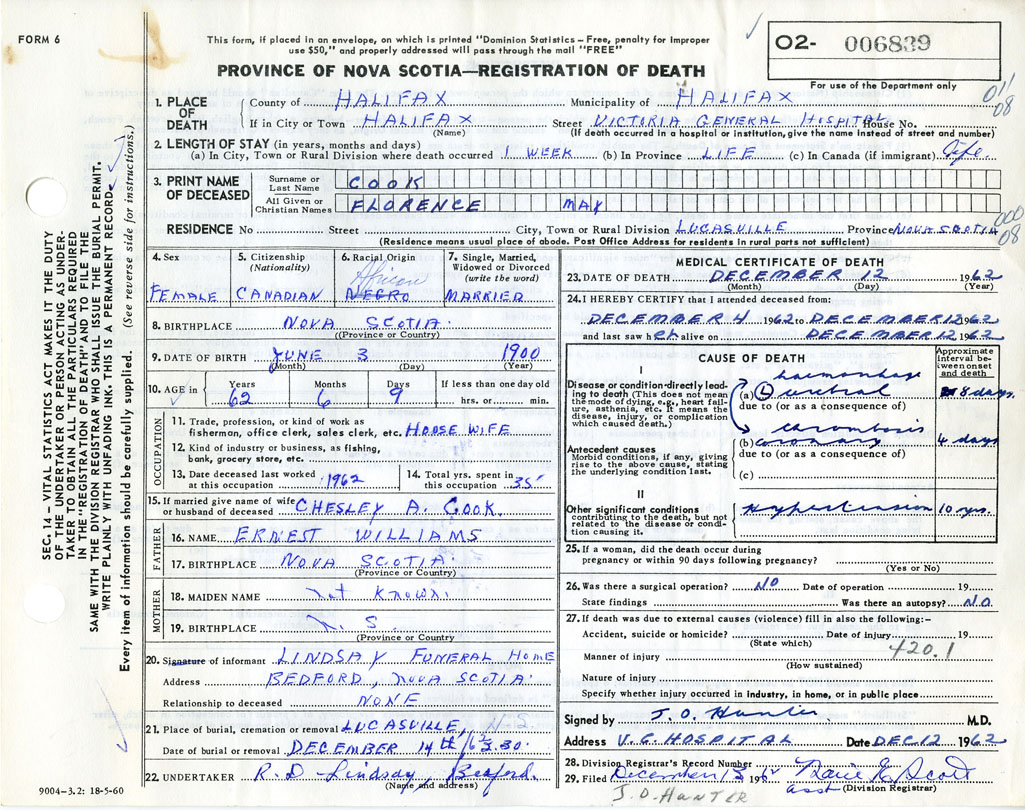 FORM 6
This form, if placed in an envelope, on which is printed "Dominion Statistics—Free, penalty for improper
use $50," and properly addressed will pass through the mail "FREE"
O2- 006839
For use of the Department only
PROVINCE OF NOVA SCOTIA—REGISTRATION OF DEATH
01
08
1. PLACE OF DEATH
County of HALIFAX Municipality of HALIFAX
If in City or Town HALIFAX Street VICTORIA GENERAL HOSPITAL House No.
(Name) (If death occurred in a hospital or institution, give the name instead of street and number)
2. LENGTH OF STAY (in years, months and days)
(a) In City, Town or Rural Division where death occurred 1 WEEK (b) In Province LIFE (c) In Canada (if immigrant) Life
3. PRINT NAME OF DECEASED
Surname or Last Name COOK
All Given or Christian Names FLORENCE MAY
000
08
RESIDENCE No Street City, Town or Rural Division LUCASVILLE Province NOVA SCOTIA
(Residence means usual place of abode. Post Office Address for residents in rural parts not sufficient)
4. Sex FEMALE
5. Citizenship (Nationality) CANADIAN
6. Racial Origin African NEGRO
7. Single, Married, Widowed or Divorced (write the word) MARRIED
8. BIRTHPLACE NOVA SCOTIA
(Province or Country)
9. DATE OF BIRTH JUNE 3 1900
(Month) (Day) (Year)
10. AGE in Years 62 Months 6 Days 9 If less than one day old hrs. or min.
OCCUPATION
11. Trade, profession, or kind of work as
fisherman, office clerk, sales clerk, etc. HOUSE WIFE
12. Kind of industry or business, as fishing,
bank, grocery store, etc.
13. Date deceased last worked at this occupation 1962
14. Total yrs. spent in this occupation 35
15. If married give name of wife or husband of deceased CHESLEY A. COOK.
FATHER
16. NAME ERNEST WILLIAMS
17. BIRTHPLACE NOVA SCOTIA
(Province or Country)
MOTHER
18. MAIDEN NAME not known.
19. BIRTHPLACE N. S.
(Province or Country
20. Signature of informant LINDSAY FUNERAL HOME
Address BEDFORD, NOVA SCOTIA
Relationship to deceased NONE
21. Place of burial, cremation or removal LUCASVILLE, N.S.
Date of burial or removal DECEMBER 14th /62 3.30
22. UNDERTAKER R. D. Lindsay, Bedford.
(Name and address)
9004-3.2: 18-5-60
MEDICAL CERTIFICATE OF DEATH
23. DATE OF DEATH DECEMBER 12 1962
(Month) (Day) (Year)
24. I HEREBY CERTIFY that I attended deceased from:
DECEMBER 4 1962 to DECEMBER 12 1962
and last saw h er alive on DECEMBER 12 1962
CAUSE OF DEATH
Approximate interval between onset and death
I
Disease or condition directly leading to death (This does not mean the mode of dying, e.g., heart failure, asthenia, etc. It means the disease, injury, or complication which caused death.)
haemorrhage
(a) cerebral 8 days
due to (or as a consequence of)
thrombosis
(b) coronary 4 days
due to (or as a consequence of)
(c)
Antecedent causes
Morbid conditions, if any, giving rise to the above cause, stating the underlying condition last.
II
Other significant conditions
contributing to the death, but not related to the disease or condition causing it.
Hypertension 10 yrs.
25. If a woman, did the death occur during
pregnancy or within 90 days following pregnancy?
(Yes or No)
26. Was there a surgical operation? NO Date of operation 19
State findings Was there an autopsy? NO
27. If death was due to external causes (violence) fill in also the following:—
Accident, suicide or homicide? Date of injury 19
(State which)
420.1
Manner of injury
(How sustained)
Nature of injury
Specify whether injury occurred in industry, in home, or in public place
Signed by J. O. Hunter M.D.
Address V. G. HOSPITAL Date DEC. 12 1962
28. Division Registrar's Record Number
29. Filed December 196 Scott
asst (Division Registrar)
J. O. HUNTER
SEC. 14 - VITAL STATISTICS ACT MAKES IT THE DUTY
OF THE UNDERTAKER OR PERSON ACTING AS UNDER-
TAKER TO OBTAIN ALL THE PARTICULARS REQUIRED
IN THE "REGISTRATION OF DEATH" AND TO FILE THE
SAME WITH THE DIVISION REGISTRAR WHO SHALL ISSUE THE BURIAL PERMIT.
WRITE PLAINLY WITH UNFADING INK. THIS IS A PERMANENT RECORD
Every item of information should be carefully supplied. (See reverse side for instructions.)